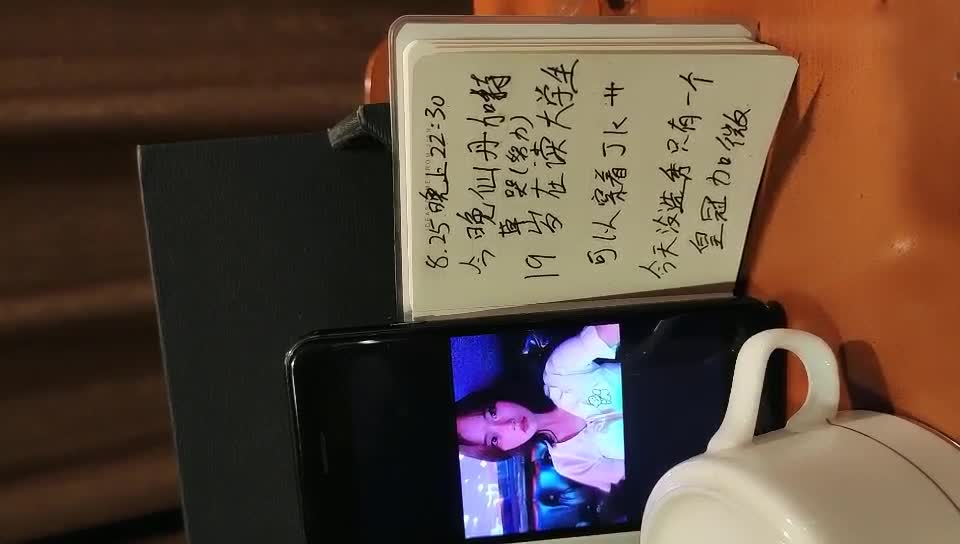 8.25晚上22:30
今晚仙丹加特
草哭(努力)
19岁在读大学生
可以穿着JK卡
今天没选秀只有一个
皇冠加微